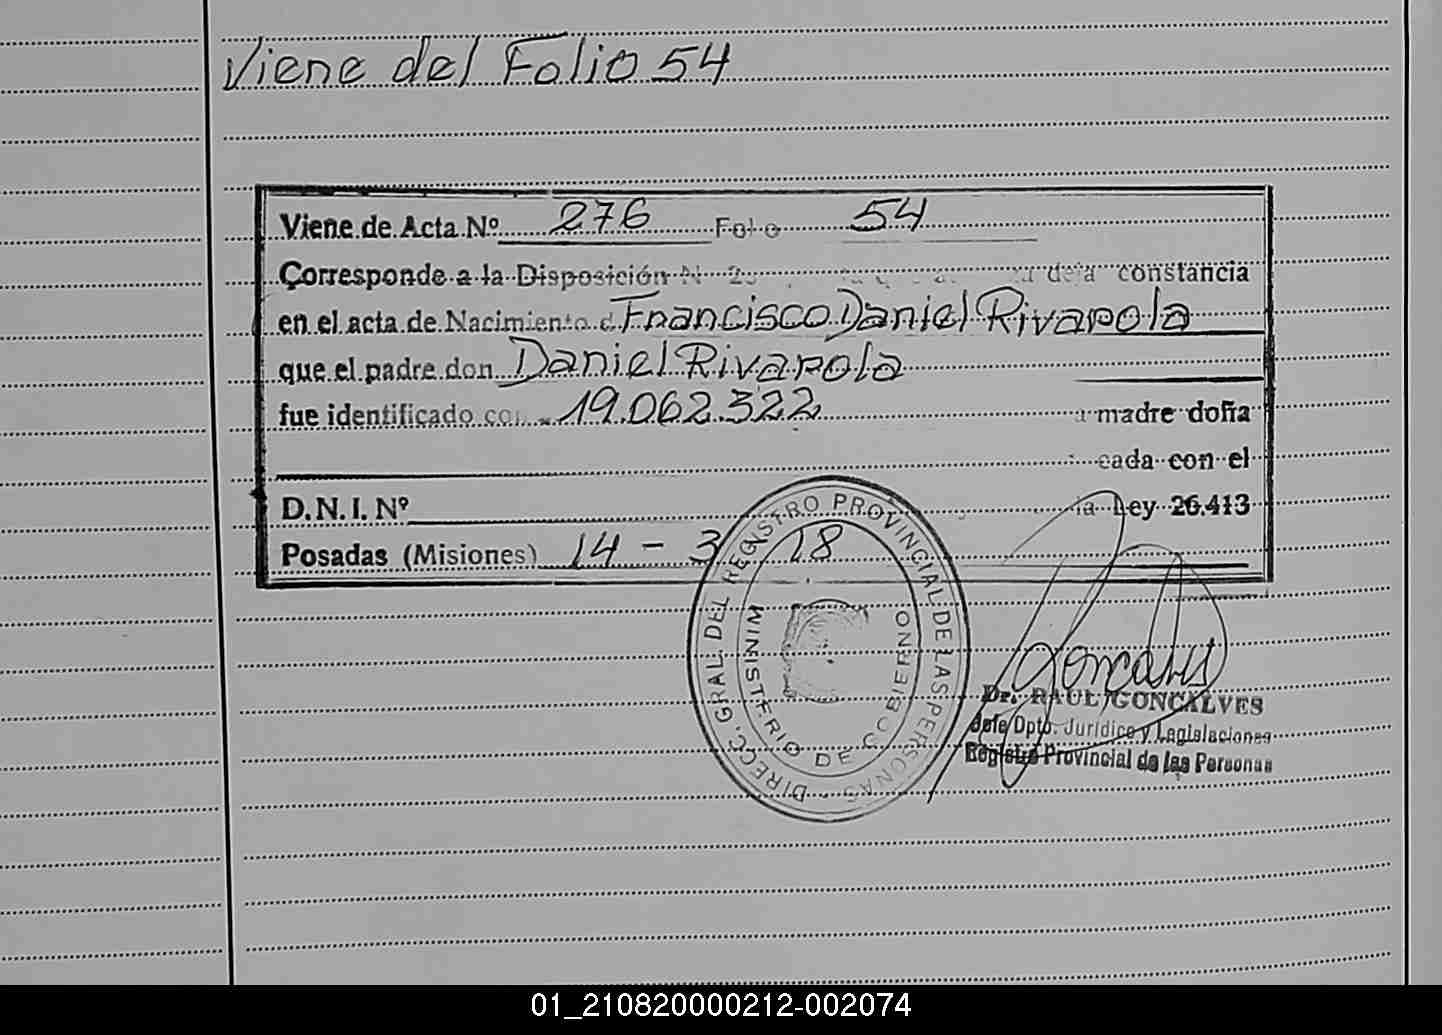 Viene del Folio 54
Viene de Acta Nº 276 Folio 54
Corresponde a la Disposición N constancia
en el acta de Nacimiento d Francisco Daniel Rivarola
que el padre don Daniel Rivarola
fue identificado con 19.062.322 madre doña
cada con el
D.N.I. Nº la Ley 26.413
Posadas (Misiones) 14 - 3 18
DIRECC. GRAL. DEL REGISTRO PROVINCIAL DE LAS PERSONAS
MINISTERIO DE GOBIERNO
Goncalves
Dr. RAUL GONCALVES
Jefe Dpto. Jurídico y Legislaciones
Registro Provincial de las Personas
01_210820000212-002074